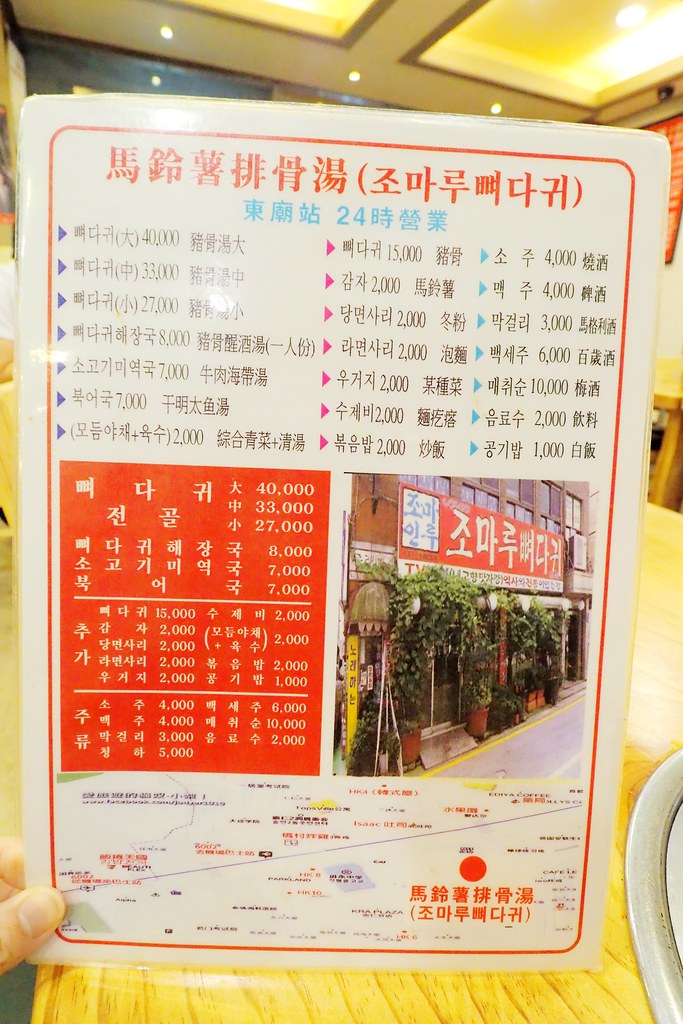 馬鈴薯排骨湯(조마루뼈다귀)
東廟站 24時營業
뼈다귀(大) 40,000 豬骨湯大
뼈다귀(中) 33,000 豬骨湯中
뼈다귀(小) 27,000 豬骨湯小
뼈다귀해장국 8,000 豬骨醒酒湯(一人份)
소고기미역국 7,000 牛肉海帶湯
북어국 7,000 干明太鱼湯
(모듬야채+육수) 2,000 綜合青菜+清湯
뼈다귀 15,000 豬骨
감자 2,000 馬鈴薯
당면사리 2,000 冬粉
라면사리 2,000 泡麵
우거지 2,000 某種菜
수제비 2,000 麵疙瘩
볶음밥 2,000 炒飯
소 주 4,000 燒酒
맥 주 4,000 啤酒
막걸리 3,000 馬格利酒
백세주 6,000 百歲酒
매취순 10,000 梅酒
음료수 2,000 飲料
공기밥 1,000 白飯
뼈다귀전골 大 40,000
中 33,000
小 27,000
뼈다귀해장국 8,000
소고기미역국 7,000
북어국 7,000
추가
뼈다귀 15,000 수제비 2,000
감자 2,000 (모듬야채+육수) 2,000
당면사리 2,000
라면사리 2,000 볶음밥 2,000
우거지 2,000 공기밥 1,000
주류
소주 4,000 백세주 6,000
맥주 4,000 매취순 10,000
막걸리 3,000 음료수 2,000
청하 5,000
조마루뼈다귀
노래하는
HK4 (韓式屋)
TopsVill公寓
EDIYA COFFEE
Isaac 吐司
水果攤
橋村炸雞
6002
HK8
PARKLAND
HK10
Alpha
KRA PLAZA
HK 6
馬鈴薯排骨湯
(조마루뼈다귀)